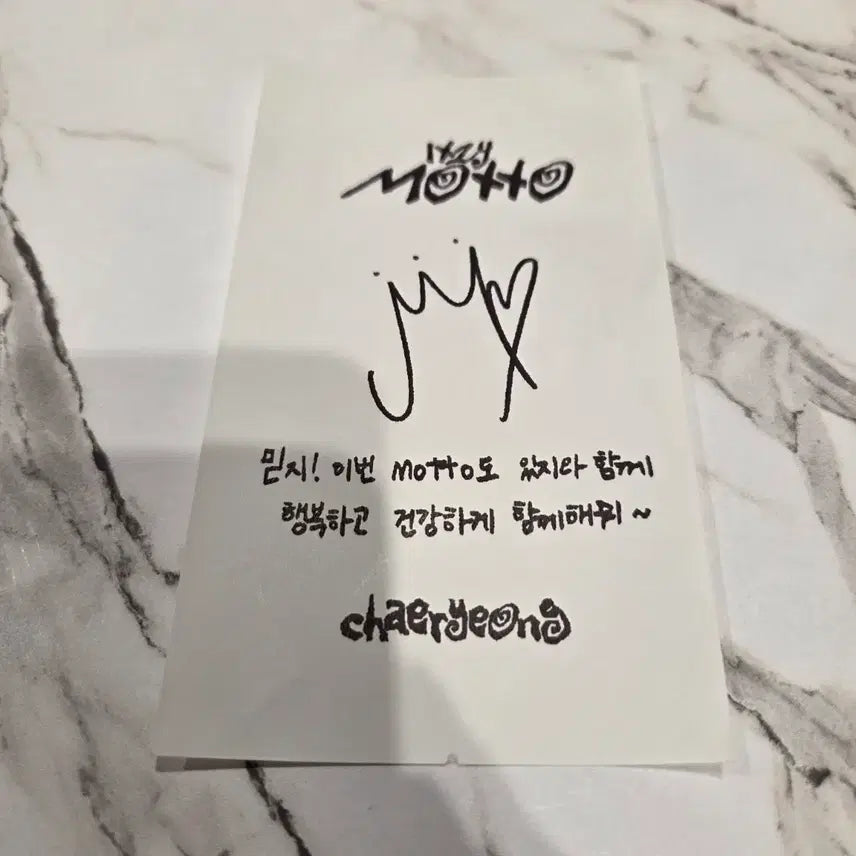 ITZY
MOTTO
믿지! 이번 MOTTO도 있지랑 함께
행복하고 건강하게 함께해줘~
chaeryeong